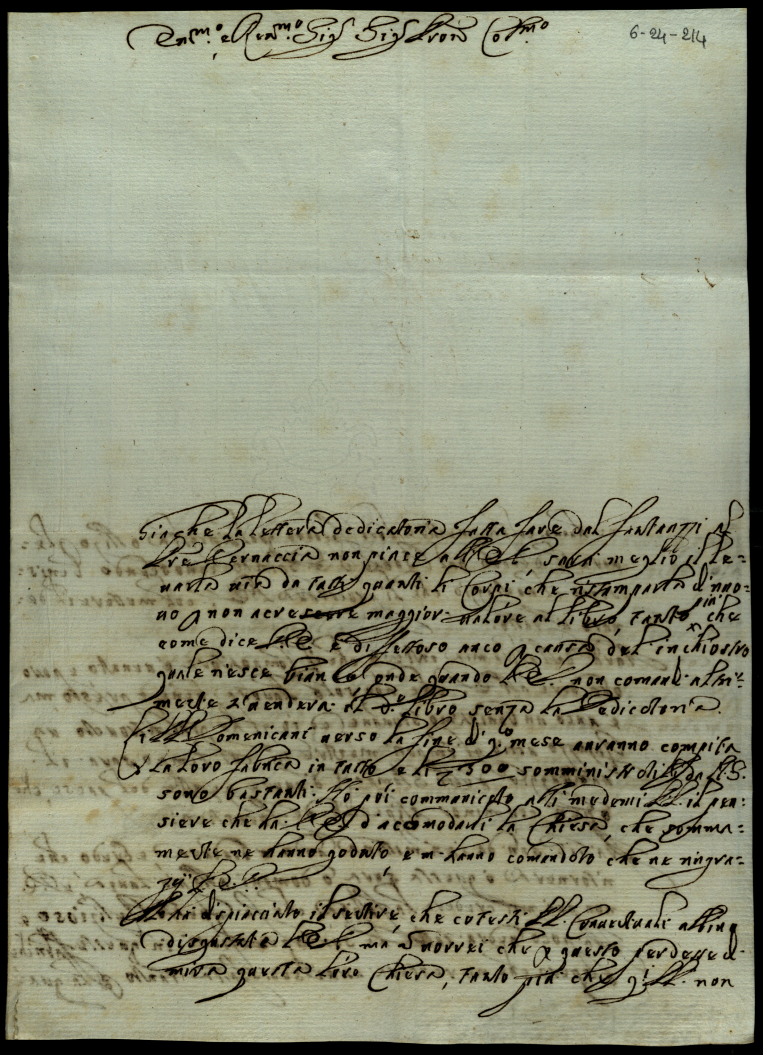 Em.mo e Rev.mo Sig.r Sig.r Pron Col.mo
6-24-214
Giache la lettera dedicatoria fatta fare dal Fantuzzi al
Pre Bernaccia non piace a V. E. sarà meglio il le=
varla via da tutti quanti li Corpi che ristamparla di nuo=
vo p non acrescere maggior valore al libro, tanto più che
come dice V. E. è difettoso anco p causa del inchiostro
quale riesce bianco, onde quando V. E. non comandi altri=
mente si venderà il d.o libro senza la Dedicatoria.
Li PP. Domenicani verso la fine di q.o mese avranno compita
la loro fabrica in tutto e li 500 somministratili da V. E.
sono bastanti. Hò poi communicato alli medemi PP. il pen=
siere che hà V. E. d'accomodarli la Chiesa, che somma=
mente ne hanno goduto e m'hanno comandato che ne ringra=
zij V. E.
Mi hà dispiacciuto il sentire che cotesti PP. Conventuali abbino
disgustata V. E. mà non vorrei che p questo perdesse di
mira questa loro Chiesa, tanto più che q.i PP. non